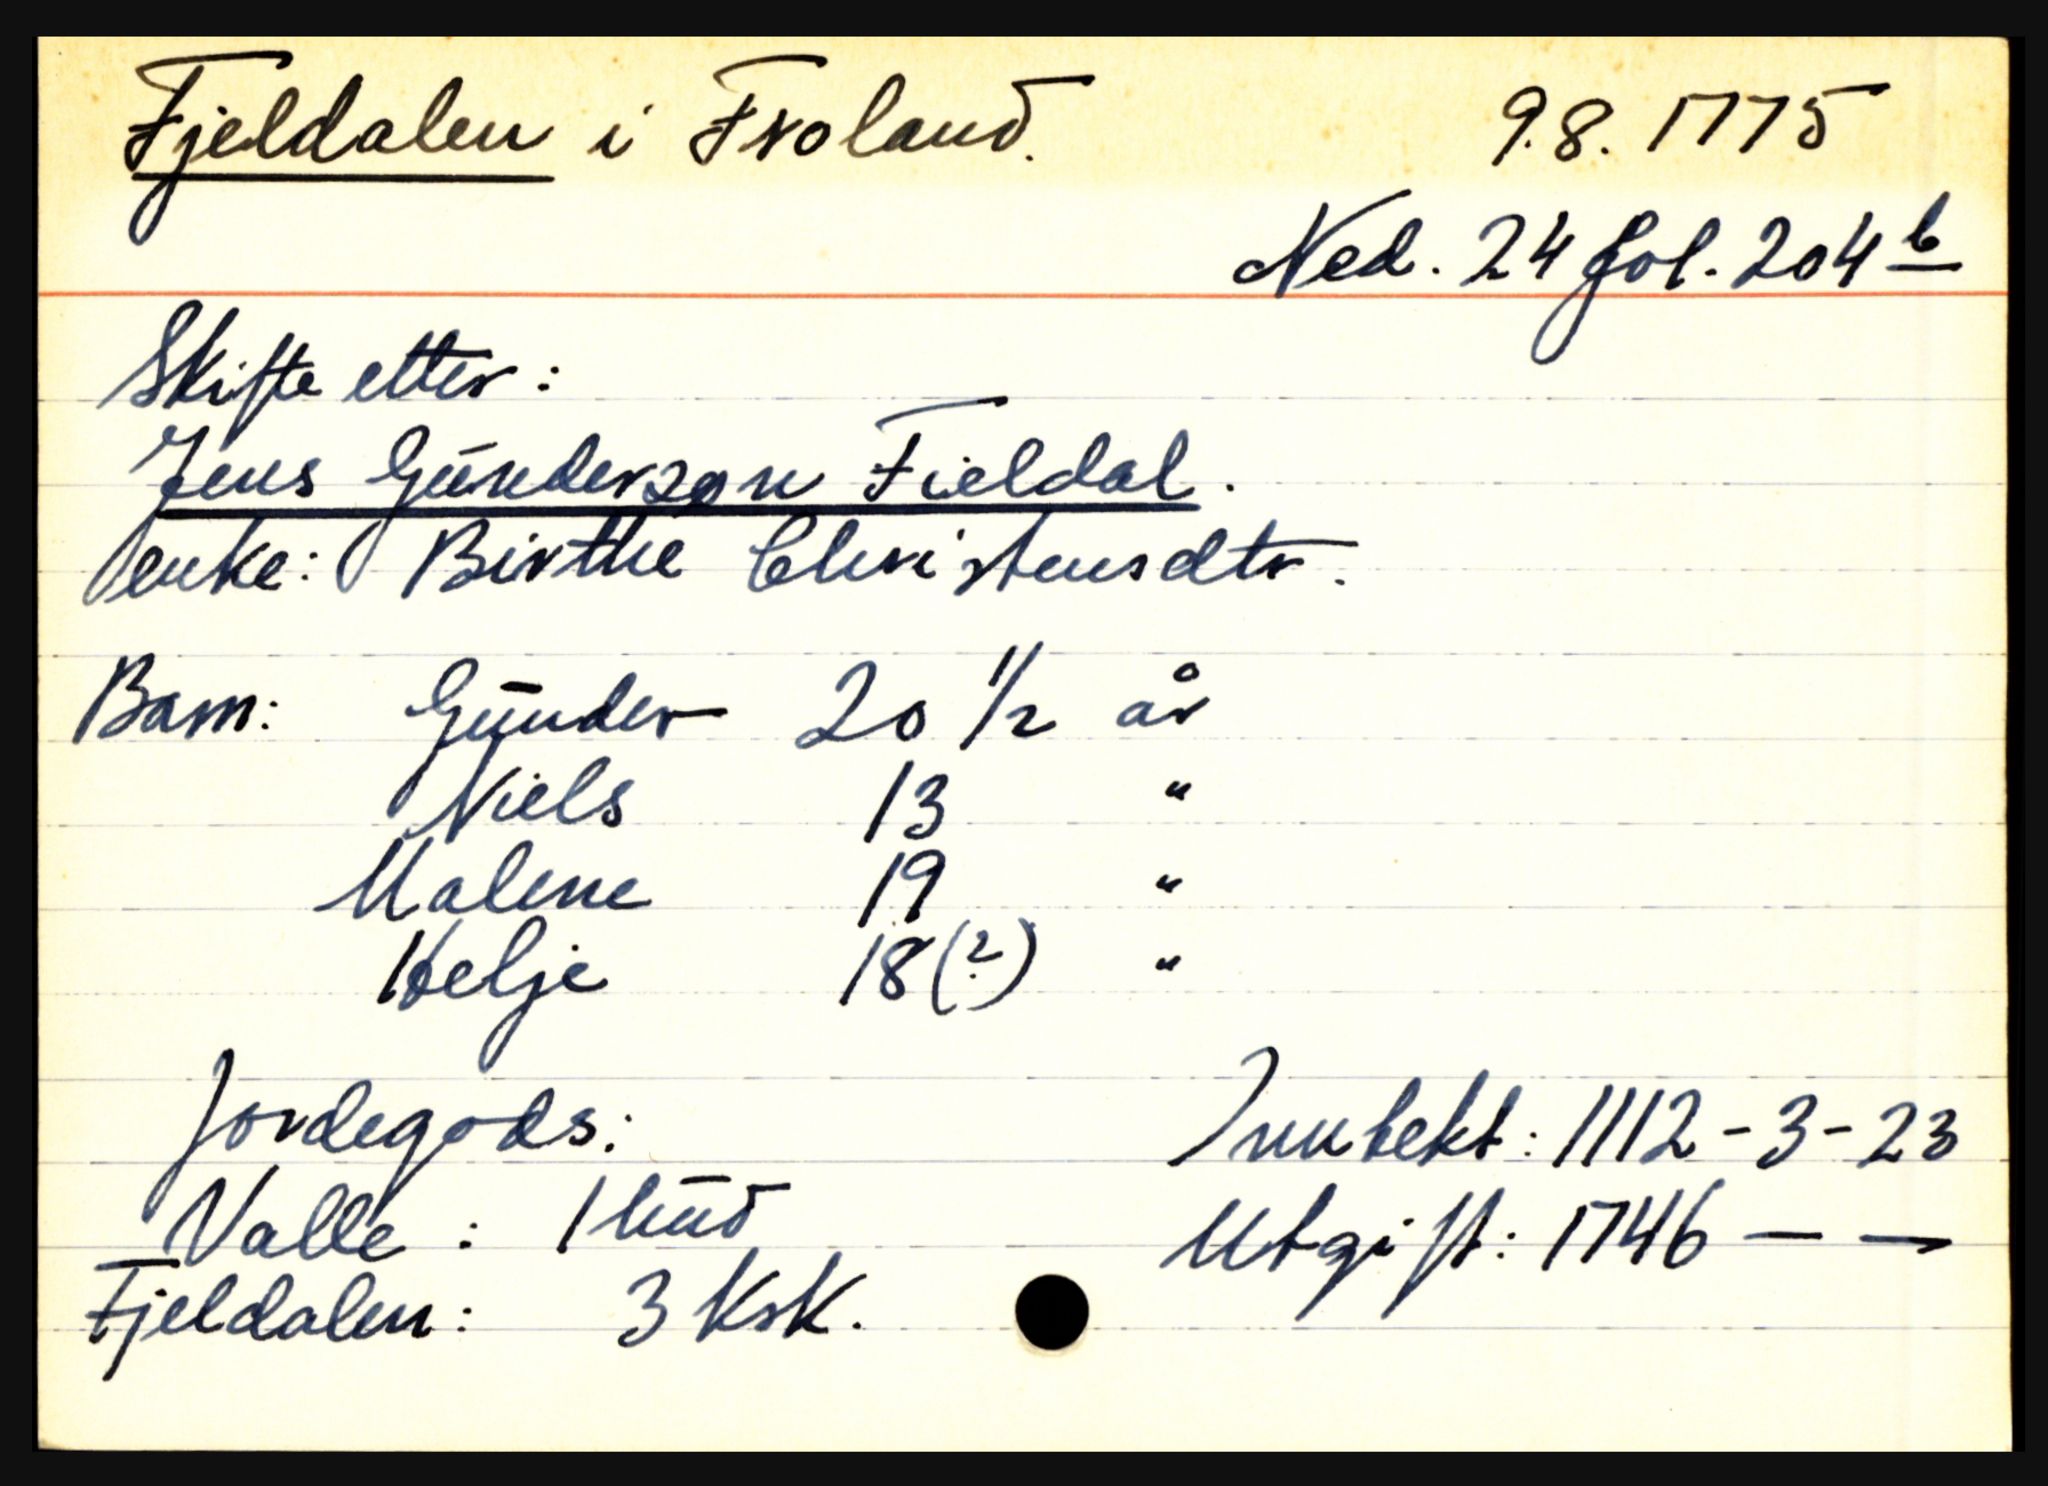 Fjeldalen i Froland. 9.8.1775
Ned. 24 fol. 204 b
Skifte etter:
Jens Gunderson Fieldal.
enke: Birthe Christensdtr.
Barn: Gunder 20 1/2 år
Niels 13 "
Malene 19 "
Helje 18 (?) "
Jordegods: Inntekt: 1112 - 3 - 23
Valle: 1 hud Utgift: 1746 — —
Fjeldalen: 3 Ksk.